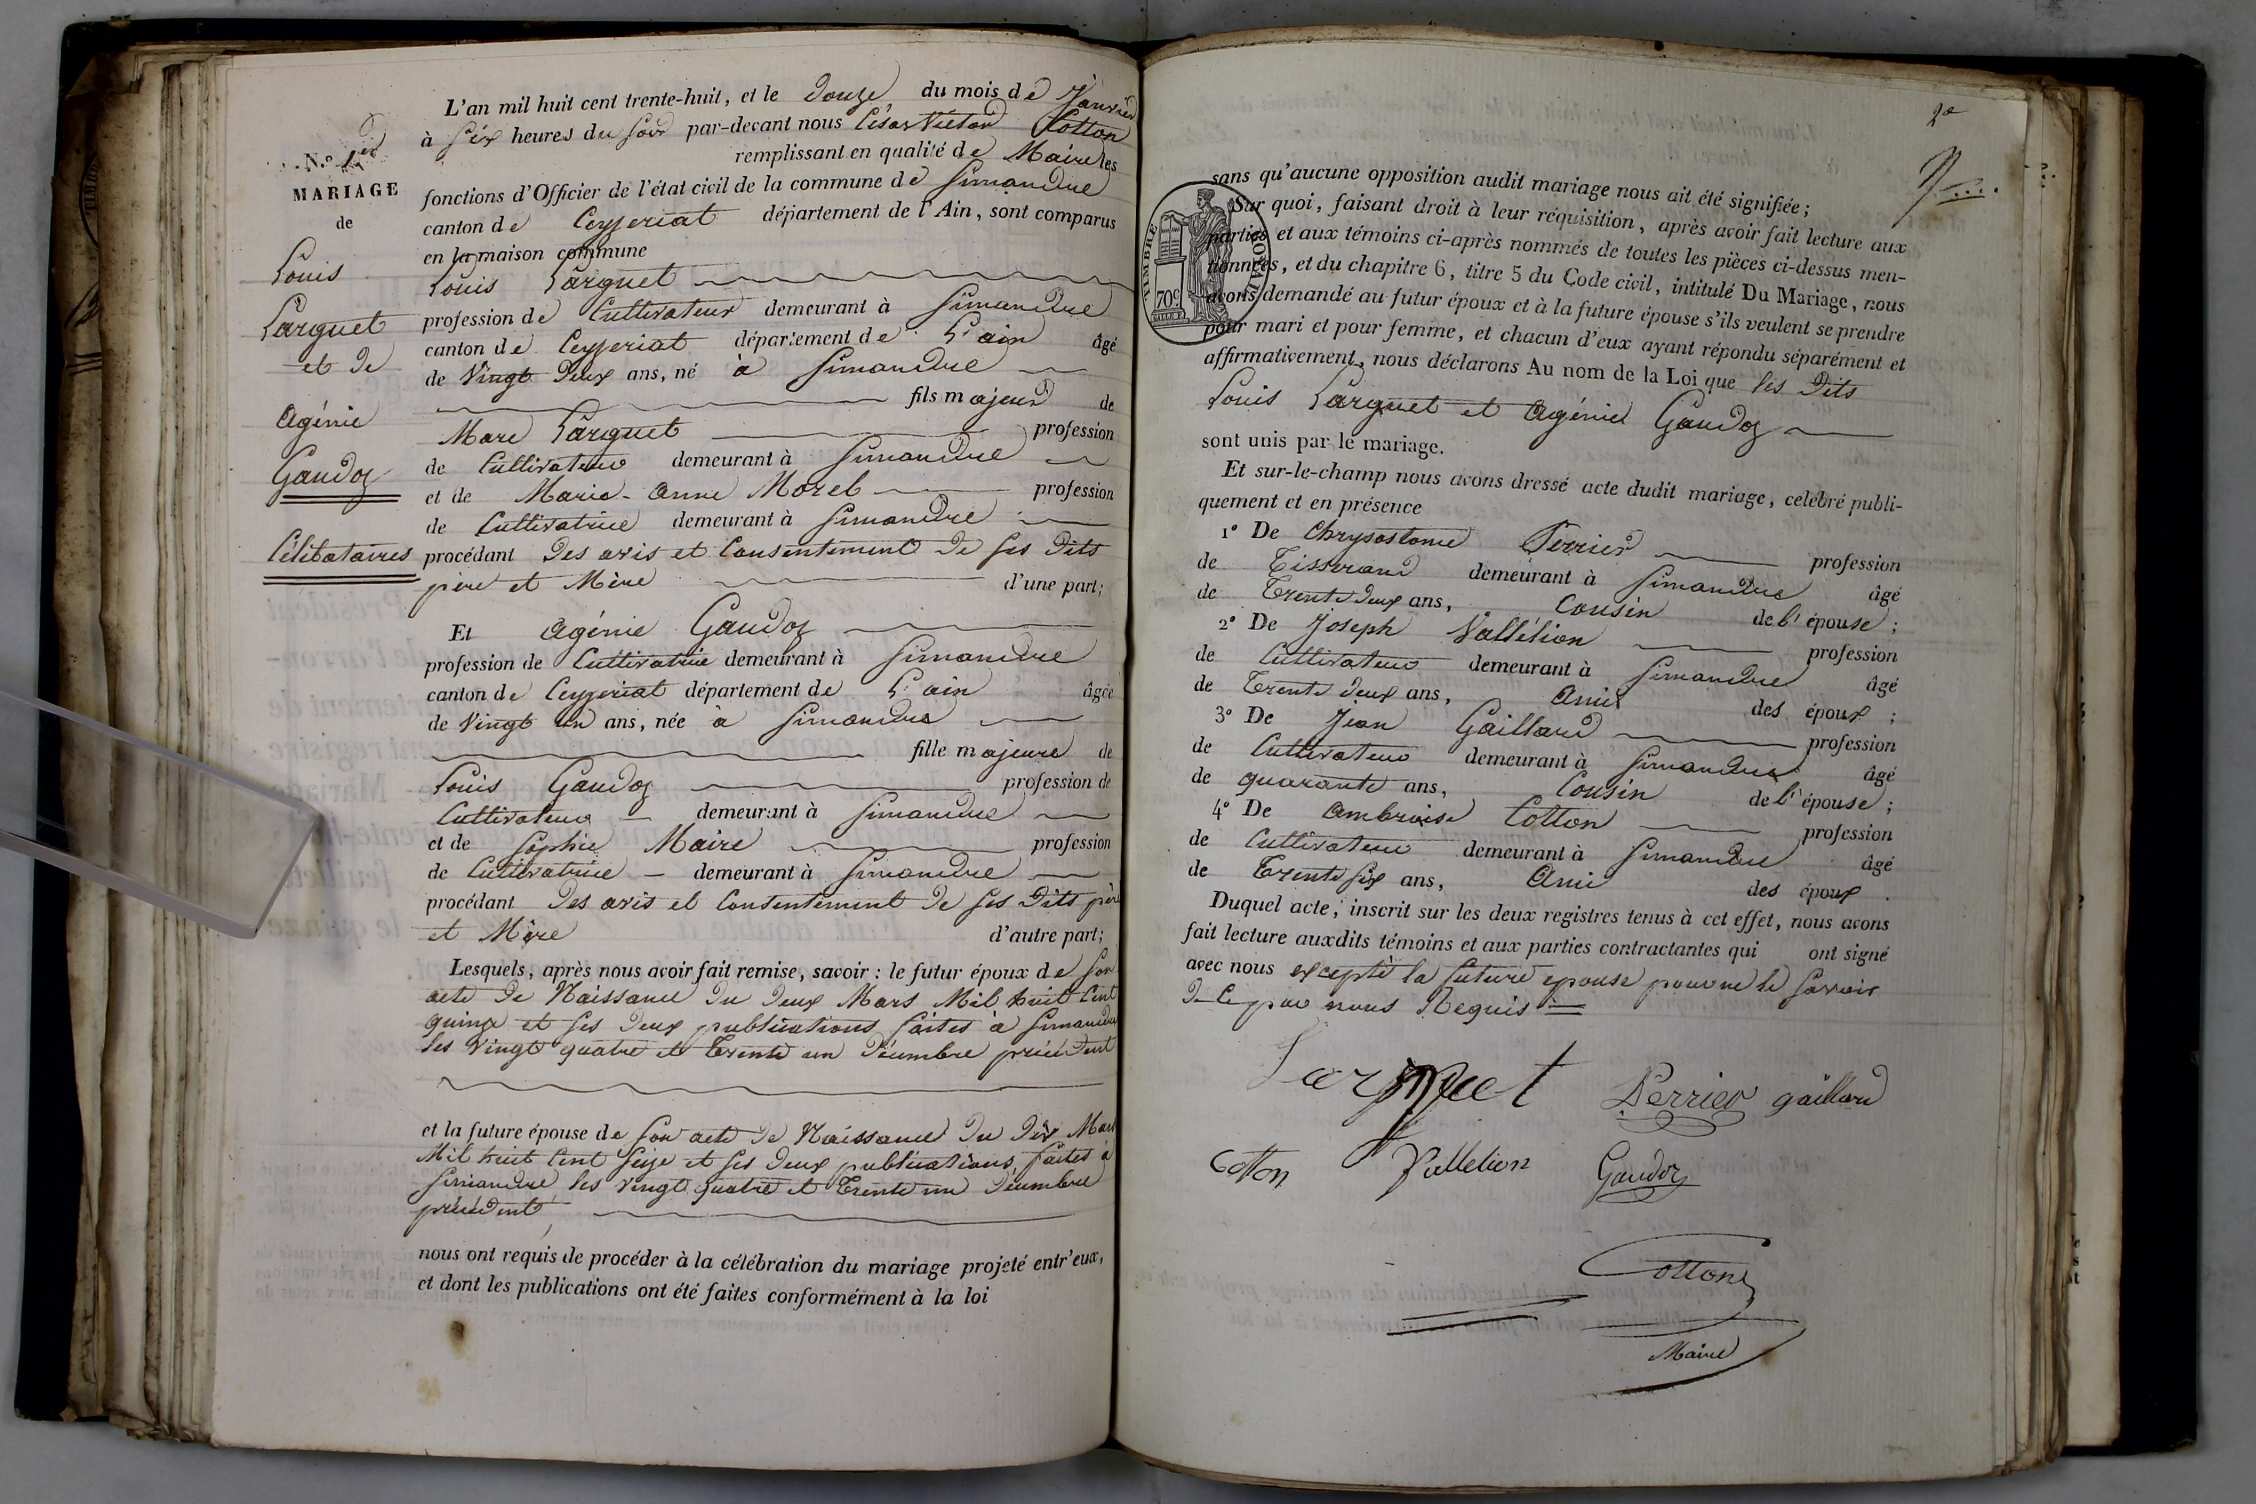 L'an mil huit cent trente-huit, et le douze du mois de Janvier
à six heures du soir par-devant nous César Victor Cotton
remplissant en qualité de Maire les
fonctions d'Officier de l'état civil de la commune de Simandre
canton de Ceyzeriat département de l'Ain, sont comparus
en la maison commune
N.º 1er
MARIAGE
de
Louis
Larguet
et de
Agénie
Gaudoz
Célibataires
Louis Larguet
profession de Cultivateur demeurant à Simandre
canton de Ceyzeriat département de L'ain âgé
de Vingt Deux ans, né à Simandre
fils majeur de
Marc Larguet profession
de Cultivateur demeurant à Simandre
et de Marie-Anne Morel profession
de Cultivatrice demeurant à Simandre
procédant Des avis et Consentement De ses Dits
père et Mère d'une part;
Et Agénie Gaudoz
profession de Cultivatrice demeurant à Simandre
canton de Ceyzeriat département de L'ain âgée
de Vingt un ans, née à Simandre
fille majeure de
Louis Gaudoz profession de
Cultivateur demeurant à Simandre
et de Sophie Maire profession
de Cultivatrice demeurant à Simandre
procédant Des avis et Consentement De ses Dits père
et Mère d'autre part;
Lesquels, après nous avoir fait remise, savoir : le futur époux de Son
acte De Naissance Du Deux Mars Mil huit Cent
quinze et ses Deux publications faites à Simandre
les Vingt quatre et Trente un Décembre précédent
et la future épouse de Son acte De Naissance Du Dix Mars
Mil huit Cent Seize et ses Deux publications faites à
Simandre les vingt quatre et Trente un Décembre
précédent
nous ont requis de procéder à la célébration du mariage projeté entr'eux,
et dont les publications ont été faites conformément à la loi
2e
TIMBRE ROYAL
70c
sans qu'aucune opposition audit mariage nous ait été signifiée;
Sur quoi, faisant droit à leur réquisition, après avoir fait lecture aux
parties et aux témoins ci-après nommés de toutes les pièces ci-dessus men-
tionnées, et du chapitre 6, titre 5 du Code civil, intitulé Du Mariage, nous
avons demandé au futur époux et à la future épouse s'ils veulent se prendre
pour mari et pour femme, et chacun d'eux ayant répondu séparément et
affirmativement, nous déclarons Au nom de la Loi que les Dits
Louis Larguet et Agénie Gaudoz
sont unis par le mariage.
Et sur-le-champ nous avons dressé acte dudit mariage, célébré publi-
quement et en présence
1º De Chrysostome Perrier profession
de Tisserand demeurant à Simandre âgé
de Trente Deux ans, Cousin de l'épouse;
2º De Joseph Vallélion profession
de Cultivateur demeurant à Simandre âgé
de Trente Deux ans, Ami des époux;
3º De Jean Gaillard profession
de Cultivateur demeurant à Simandre âgé
de quarante ans, Cousin de l'épouse;
4º De Ambroise Cotton profession
de Cultivateur demeurant à Simandre âgé
de Trente Six ans, Ami des époux.
Duquel acte, inscrit sur les deux registres tenus à cet effet, nous avons
fait lecture auxdits témoins et aux parties contractantes qui ont signé
avec nous excepté la future epouse pour ne le savoir
De Ce par nous Requis
Larguet Perrier gaillard
Cotton Vallelion Gaudoz
Cotton
Maire